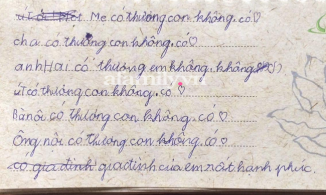 Mẹ có thương con không, có♡
cha có thương con không, có♡
anh Hai có thương em không, không
út có thương con không, có
Bà nội có thương con không, có♡
Ông nội có thương con không, có♡
gia đình của em rất hạnh phúc.